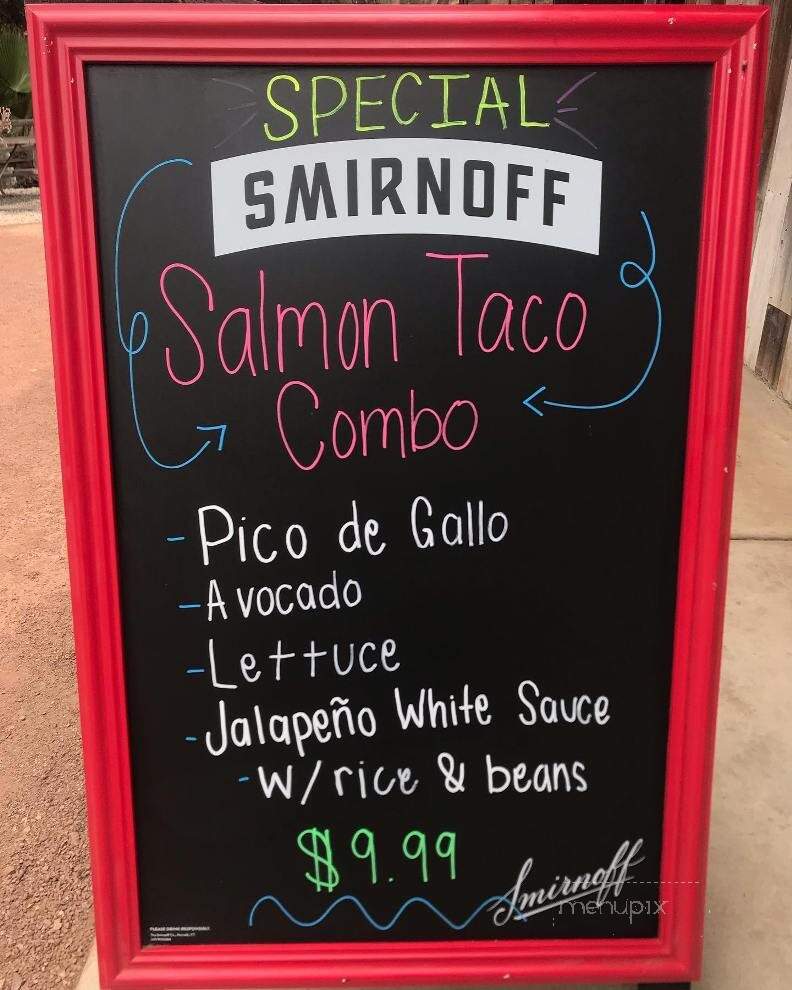 SPECIAL
SMIRNOFF
Salmon Taco
Combo
- Pico de Gallo
- Avocado
- Lettuce
- Jalapeño White Sauce
- W/rice & beans
$9.99
Smirnoff
menupix
PLEASE DRINK RESPONSIBLY.